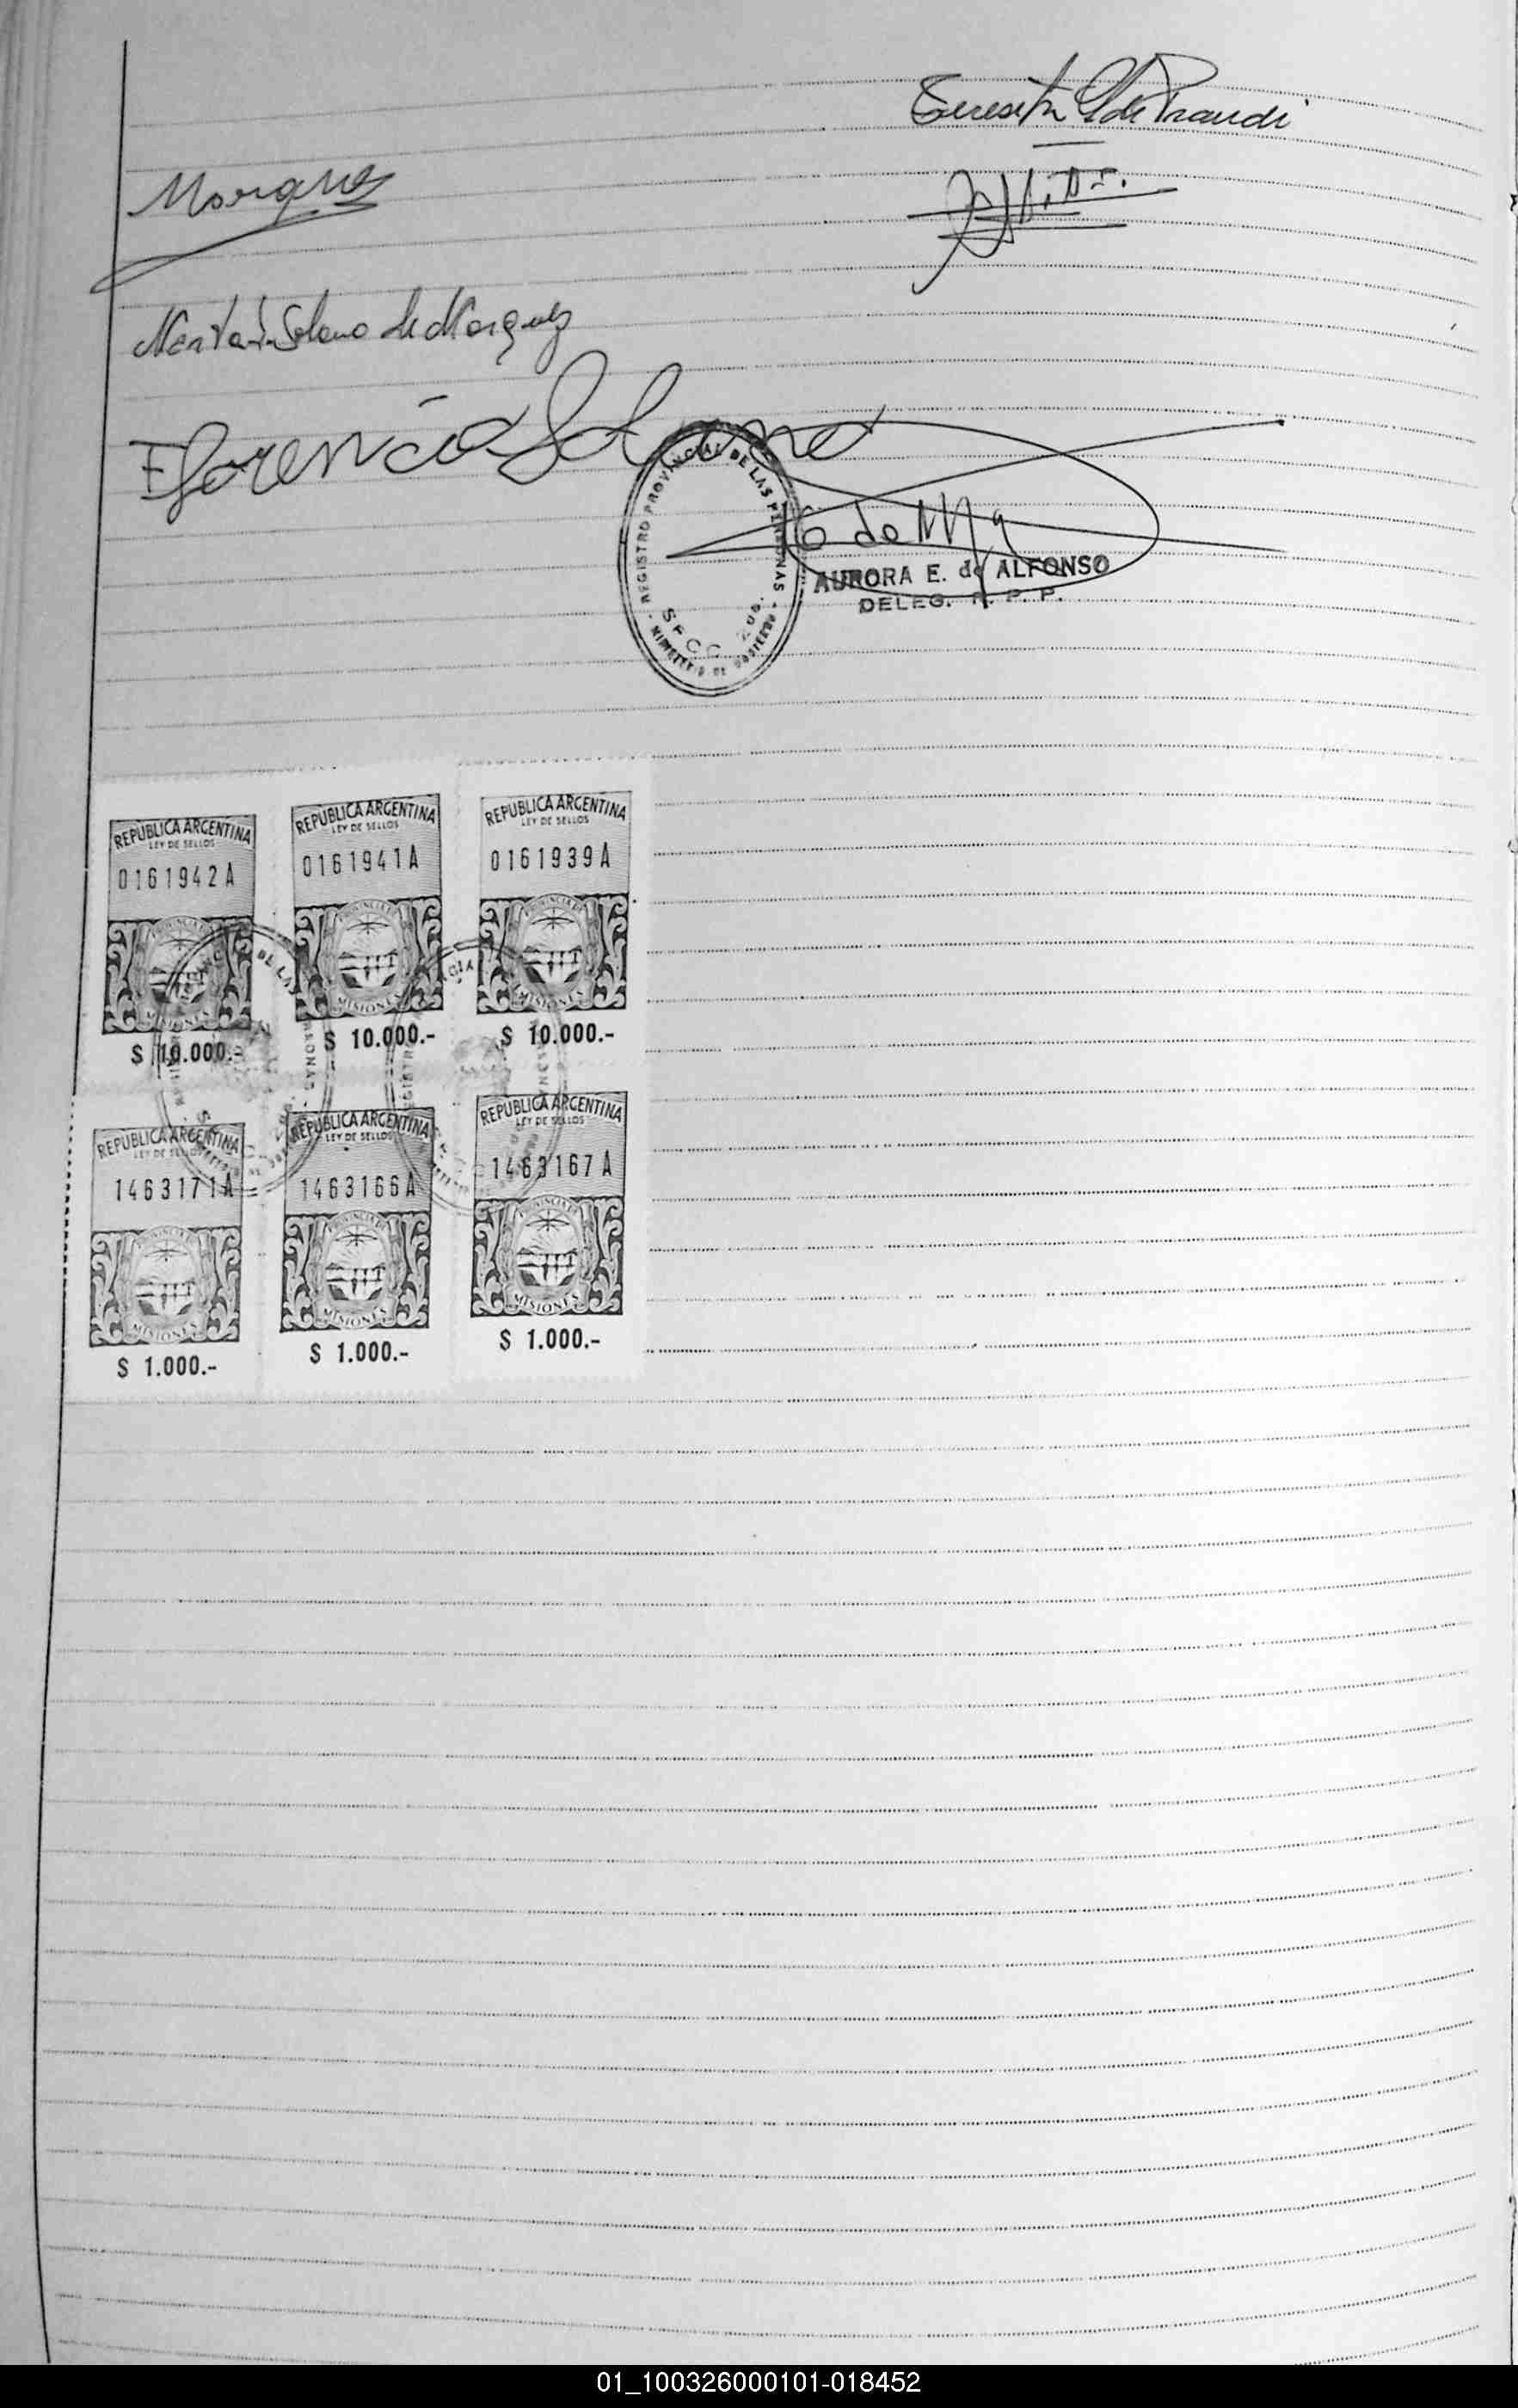 Teresita G de Prandi
Marquez
Nerta I. Solano de Marquez
Florencia Solano
REGISTRO PROVINCIAL DE LAS PERSONAS
MINISTERIO DE GOBIERNO
SECC.
AURORA E. de ALFONSO
DELEG. R. P. P.
REPUBLICA ARGENTINA
LEY DE SELLOS
0161942A
MISIONES
$ 10.000.-
REPUBLICA ARGENTINA
LEY DE SELLOS
0161941A
PROVINCIA DE
MISIONES
$ 10.000.-
REPUBLICA ARGENTINA
LEY DE SELLOS
0161939A
PROVINCIA DE
MISIONES
$ 10.000.-
REPUBLICA ARGENTINA
LEY DE SELLOS
1463171A
PROVINCIA DE
MISIONES
$ 1.000.-
REPUBLICA ARGENTINA
LEY DE SELLOS
1463166A
PROVINCIA DE
MISIONES
$ 1.000.-
REPUBLICA ARGENTINA
LEY DE SELLOS
1463167A
PROVINCIA DE
MISIONES
$ 1.000.-
01_100326000101-018452